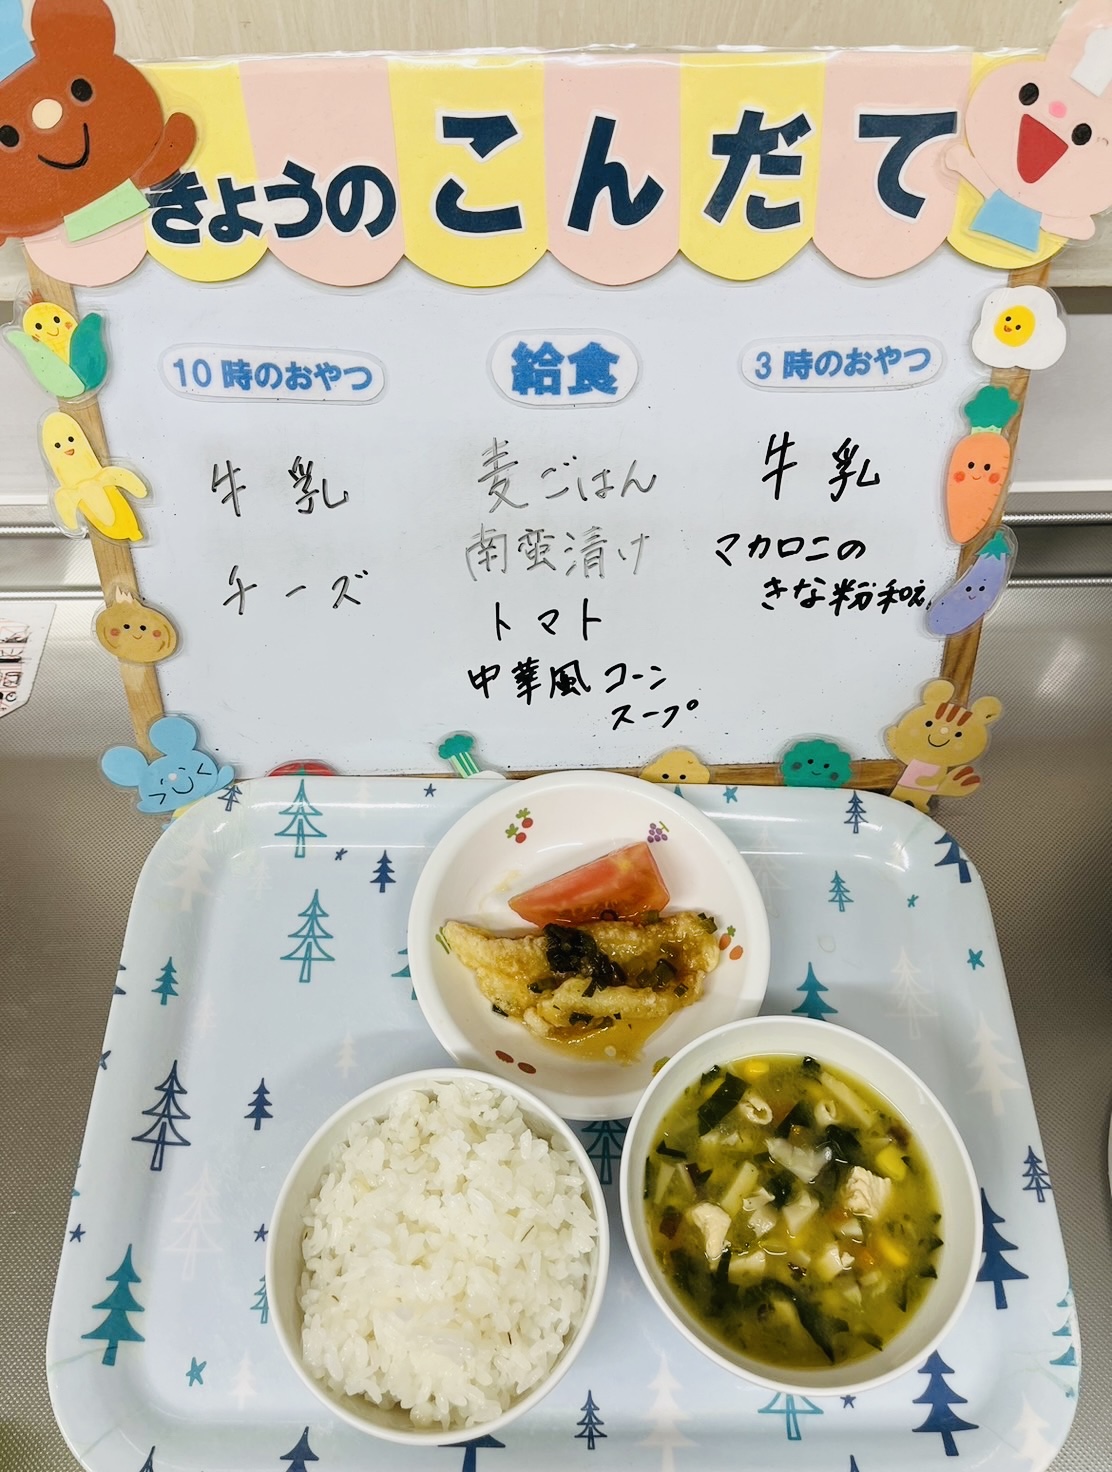 きょうの こんだて
10時のおやつ
牛乳
チーズ
給食
麦ごはん
南蛮漬け
トマト
中華風コーン
スープ
3時のおやつ
牛乳
マカロニの
きな粉和え